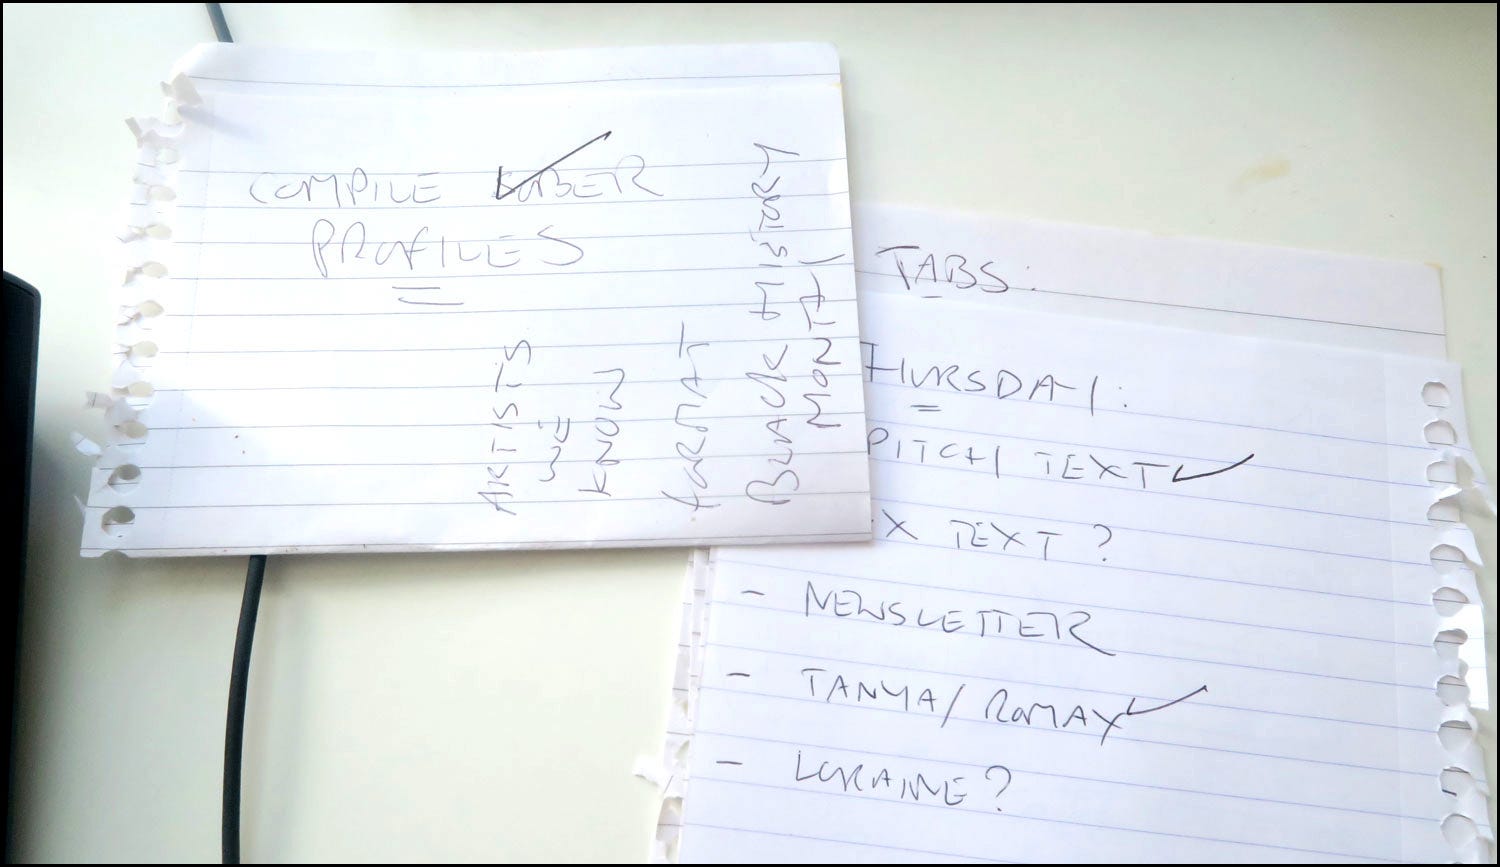 COMPILE
PROFILES
ARTISTS
WE
KNOW
FORMAT
BLACK HISTORY
MONTH
TABS:
THURSDAY:
PITCH TEXT
X TEXT?
- NEWSLETTER
- TANYA/ ROMAY
- LORAINE?